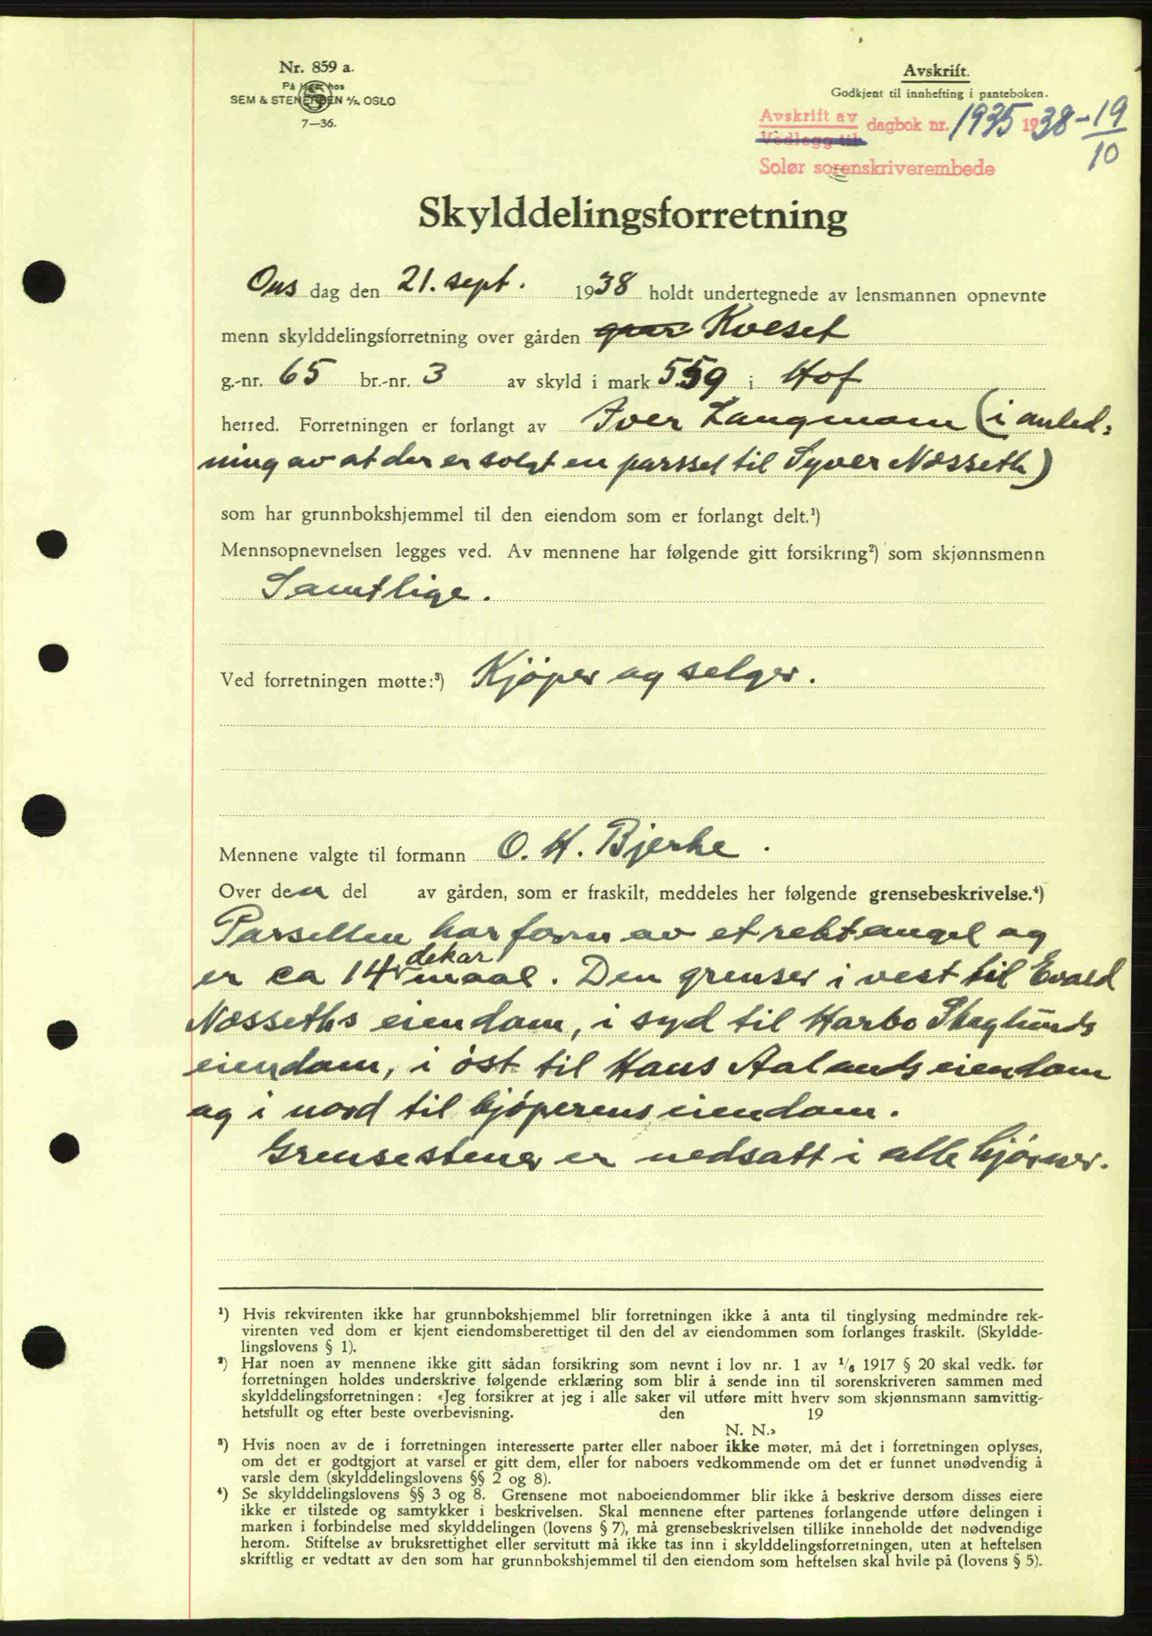 Nr. 859 a.
På lager hos
SEM & STENERSEN A/S, OSLO
7—36.
Avskrift.
Godkjent til innhefting i panteboken.
Avskrift av
Vedlegg til
dagbok nr. 1935 1938 - 19/10
Solør sorenskriverembede
Skylddelingsforretning
Ons dag den 21. sept. 1938 holdt undertegnede av lensmannen opnevnte
menn skylddelingsforretning over gården Kveset
g.-nr. 65 br.-nr. 3 av skyld i mark 5.59 i Hof
herred. Forretningen er forlangt av Iver Langmoen (i anled-
ning av at der er solgt en parssel til Syver Næsseth)
som har grunnbokshjemmel til den eiendom som er forlangt delt.¹)
Mennsopnevnelsen legges ved. Av mennene har følgende gitt forsikring²) som skjønnsmenn
Samtlige.
Ved forretningen møtte:³) Kjöper og selger.
Mennene valgte til formann O. H. Bjerke.
Over den del av gården, som er fraskilt, meddeles her følgende grensebeskrivelse.⁴)
Parsellen har form av et rektangel og
er ca 14 dekar maal. Den grenser i vest til Evald
Næsseths eiendom, i syd til Harbo Skoglunds
eiendom, i öst til Hans Aalands eiendom
og i nord til kjöperens eiendom.
Grensestener er nedsatt i alle hjörner.
¹) Hvis rekvirenten ikke har grunnbokshjemmel blir forretningen ikke å anta til tinglysing medmindre rek-
virenten ved dom er kjent eiendomsberettiget til den del av eiendommen som forlanges fraskilt. (Skyldde-
lingslovens § 1).
²) Har noen av mennene ikke gitt sådan forsikring som nevnt i lov nr. 1 av 1/6 1917 § 20 skal vedk. før
forretningen holdes underskrive følgende erklæring som blir å sende inn til sorenskriveren sammen med
skylddelingsforretningen: «Jeg forsikrer at jeg i alle saker vil utføre mitt hverv som skjønnsmann samvittig-
hetsfullt og efter beste overbevisning. den 19
N. N.»
³) Hvis noen av de i forretningen interesserte parter eller naboer ikke møter, må det i forretningen oplyses,
om det er godtgjort at varsel er gitt dem, eller for naboers vedkommende om det er funnet unødvendig å
varsle dem (skylddelingslovens §§ 2 og 8).
⁴) Se skylddelingslovens §§ 3 og 8. Grensene mot naboeiendommer blir ikke å beskrive dersom disses eiere
ikke er tilstede og samtykker i beskrivelsen. Skal mennene efter partenes forlangende utføre delingen i
marken i forbindelse med skylddelingen (lovens § 7), må grensebeskrivelsen tillike inneholde det nødvendige
herom. Stiftelse av bruksrettighet eller servitutt må ikke tas inn i skylddelingsforretningen, uten at heftelsen
skriftlig er vedtatt av den som har grunnbokshjemmel til den eiendom som heftelsen skal hvile på (lovens § 5).